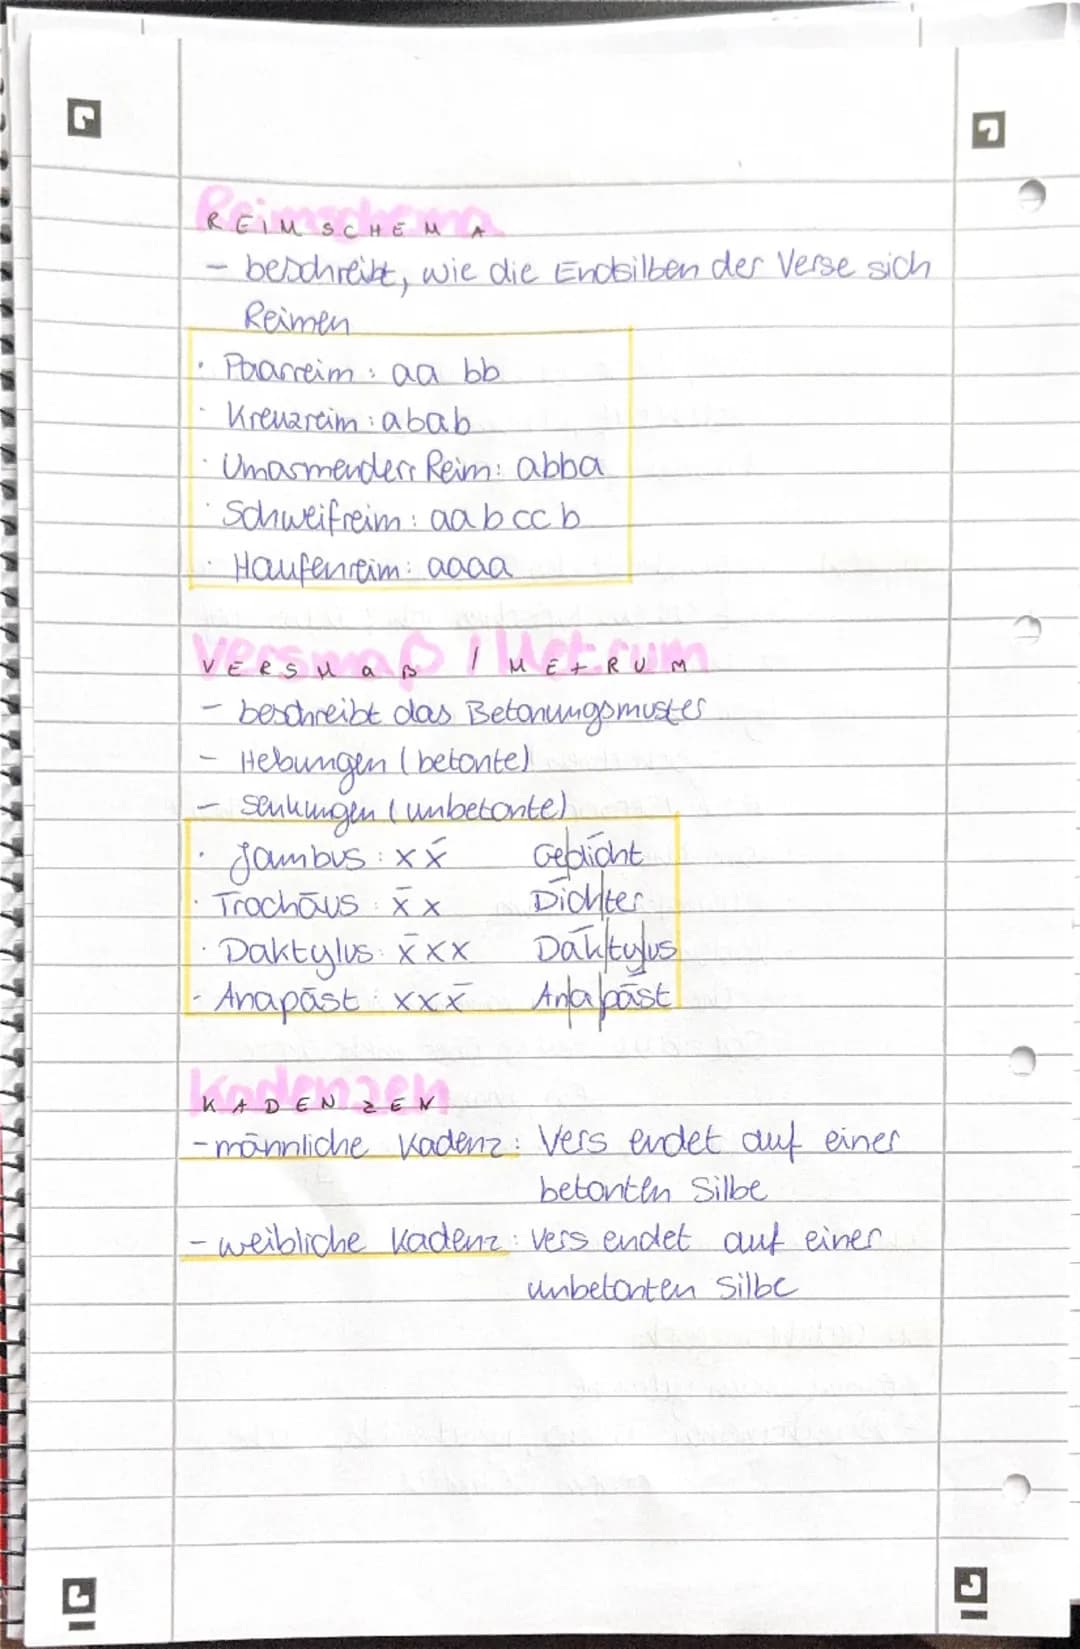 Reimschema
REIMSCHEMA
- beschreibt, wie die Endsilben der Verse sich
Reimen
· Paarreim: aa bb
· Kreuzreim: abab
· Umarmender Reim: abba
· Schweifreim: aabccb
· Haufenreim: aaaa
Versmaß / Metrum
VERSMaß / METRUM
- beschreibt das Betonungsmuster
- Hebungen (betonte)
- Senkungen (unbetonte)
· Jambus: xx́ Ge|dicht
· Trochäus: x̄x Dich|ter
· Daktylus: x̄xx Dak|ty|lus
· Anapäst: xxx̄ An|a|päst
Kadenzen
KADENZEN
- männliche Kadenz: Vers endet auf einer
betonten Silbe
- weibliche Kadenz: Vers endet auf einer
unbetonten Silbe